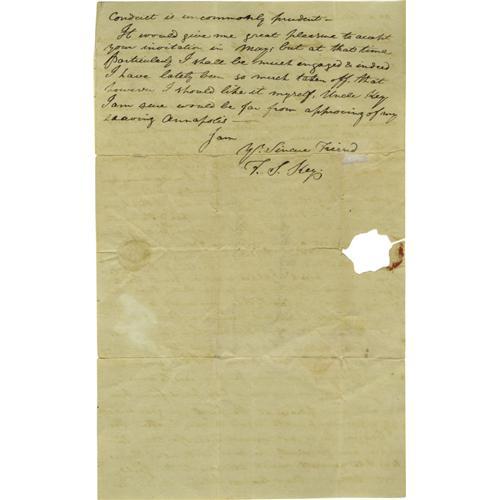 Conduct is uncommonly prudent –
It would give me great pleasure to accept
your invitation in May; but at that time
Particularly I shall be much engaged & indeed
I have lately been so much taken off, that
however I should like it myself, Uncle Key
I am sure would be far from approving of my
leaving Annapolis —
I am
Yr. Sincere Friend
F. S. Key.